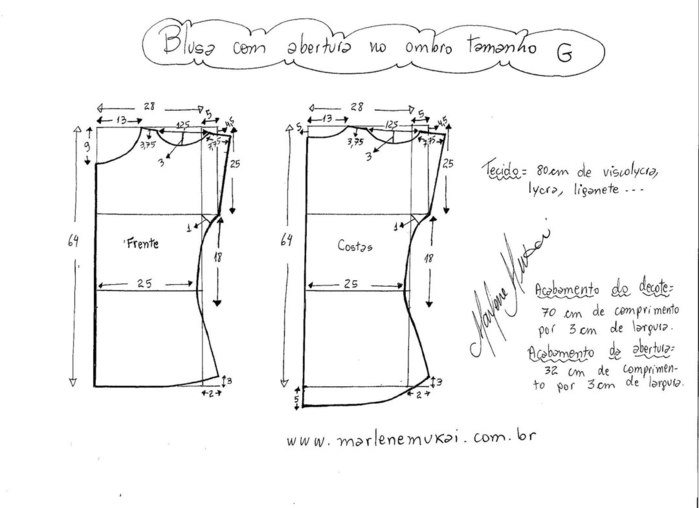 Blusa com abertura no ombro tamanho G
28
5
13
12,5
4,5
9
3,75
7,75
3
25
64
1
Frente
18
25
3
2
28
5
5
12,5
4,5
3,75
7,75
3
25
64
1
Costas
18
25
3
2
5
Tecido= 80cm de viscolycra,
lycra, liganete ...
Marlene Mukai
Acabamento do decote=
70 cm de comprimento
por 3 cm de largura.
Acabamento da abertura=
32 cm de comprimen-
to por 3cm de largura.
www.marlenemukai.com.br